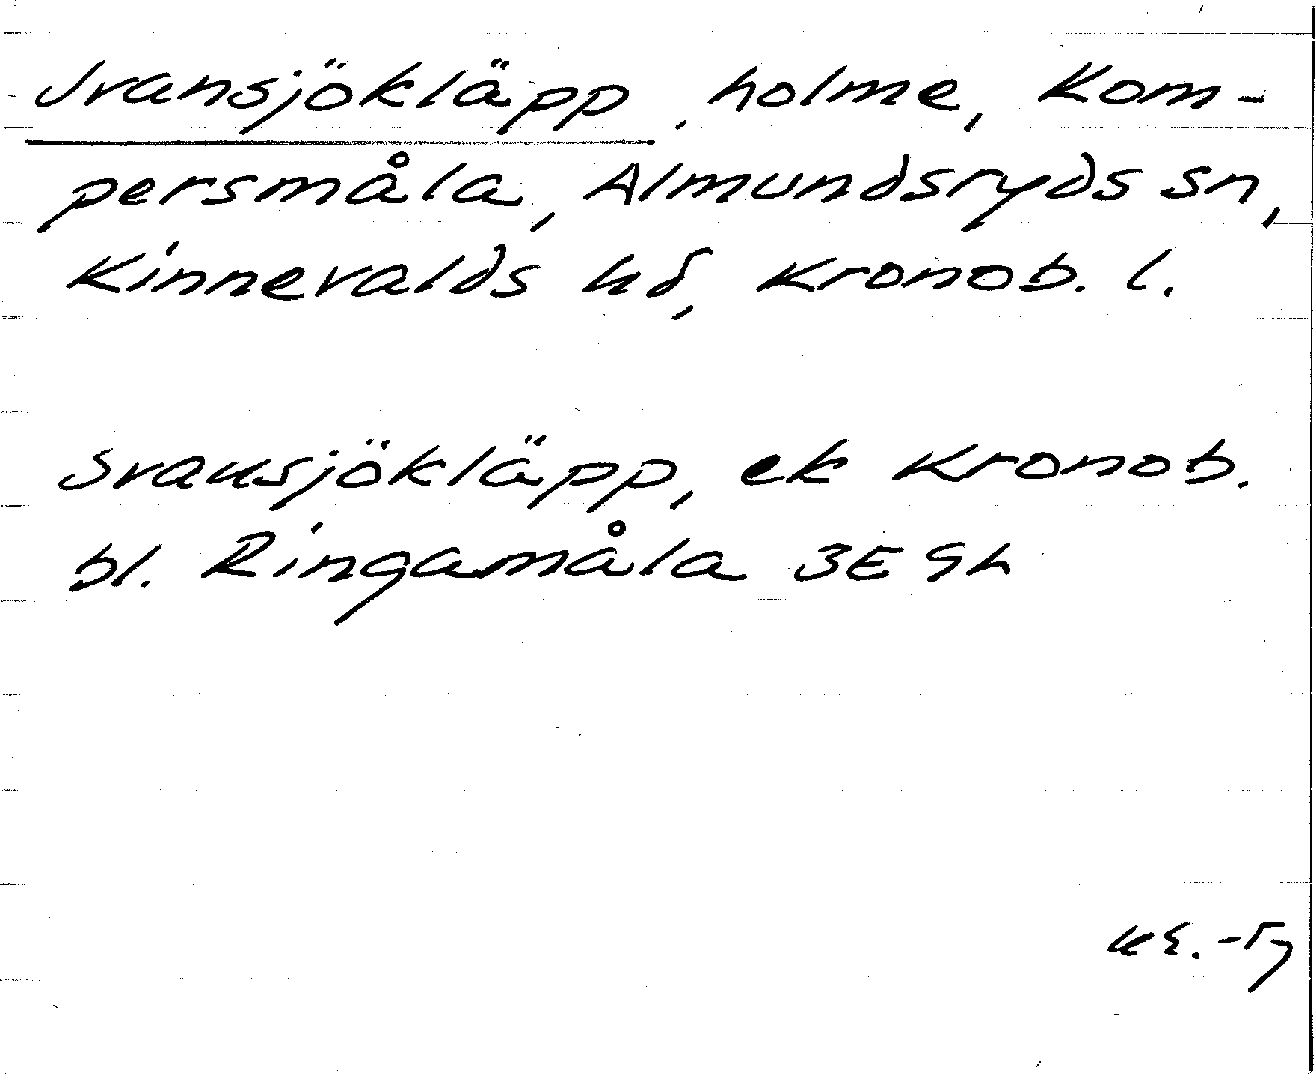 Svansjökläpp, holme, Kom-
persmåla, Almundsryds sn,
Kinnevalds hd, Kronob. l.
Svansjökläpp, ek Kronob.
bl. Ringamåla 3E 9h